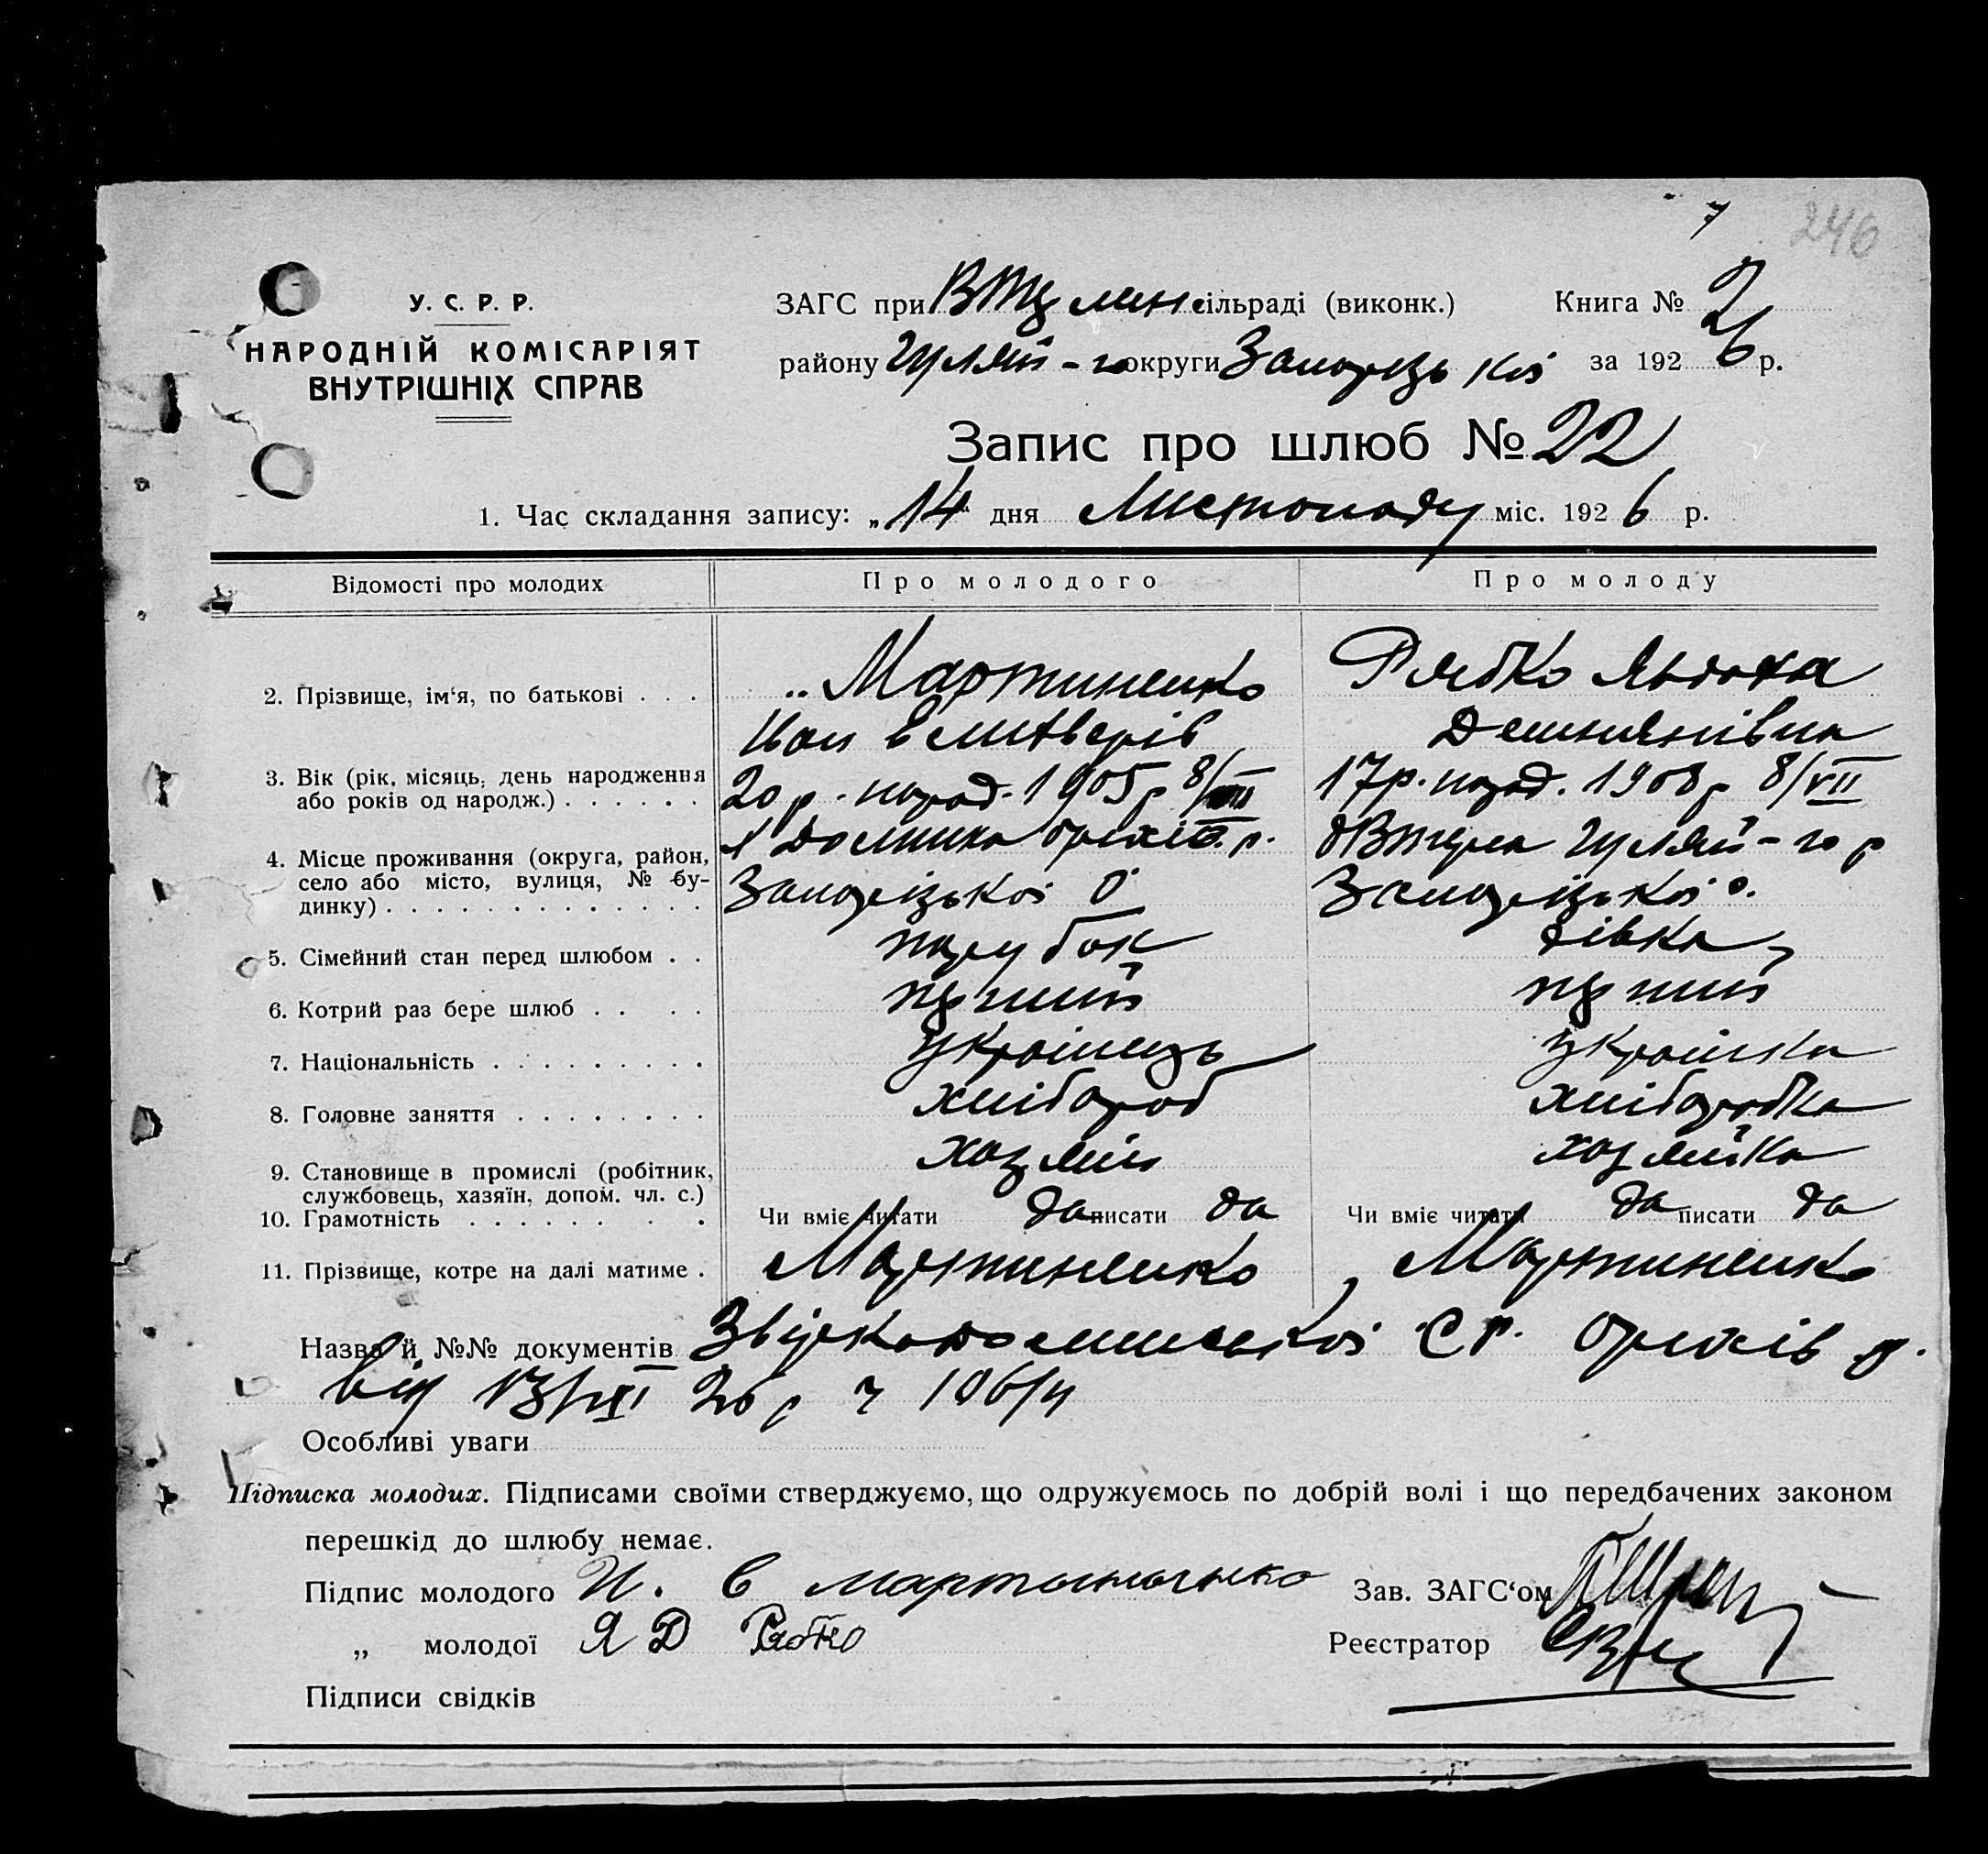 246
У. С. Р. Р.
НАРОДНІЙ КОМІСАРІЯТ
ВНУТРІШНІХ СПРАВ
ЗАГС при сільраді (виконк.) Книга № 2
району Гуляй-го округи Запорізької за 1926 р.
Запис про шлюб № 22
1. Час складання запису: „14 дня Листопаду міс. 1926 р.
Відомості про молодих Про молодого Про молоду
2. Прізвище, ім‘я, по батькові . . . Мартиненко Рябко
Іван Демянівна
3. Вік (рік, місяць, день народження
або років од народж.) . . . . . . 20 р. народ. 1905 р 8/ 17 р. народ. 1908 р 8/VII
4. Місце проживання (округа, район,
село або місто, вулиця, № бу-
динку) . . . . . . . . . . . . . Долинка Оріхів. р. Гуляй-го р
Запорізької о Запорізької о.
5. Сімейний стан перед шлюбом . . парубок дівка
6. Котрий раз бере шлюб . . . . перший перший
7. Національність . . . . . . . . . українець українка
8. Головне заняття . . . . . . . . хлібороб хліборобка
9. Становище в промислі (робітник,
службовець, хазяїн, допом. чл. с.) хозяїн хозяйка
10. Грамотність . . . . . . . . Чи вміє читати да писати да Чи вміє читати да писати да
11. Прізвище, котре на далі матиме . Мартиненко Мартиненко
Назва й №№ документів С р. Оріхів р.
від 13/XI 26 р ч 106/4
Особливі уваги
Підписка молодих. Підписами своїми стверджуємо, що одружуємось по добрій волі і що передбачених законом
перешкід до шлюбу немає.
Підпис молодого И. Е Мартыненко Зав. ЗАГС‘ом
„ молодої Я Д Рябко Реєстратор
Підписи свідків